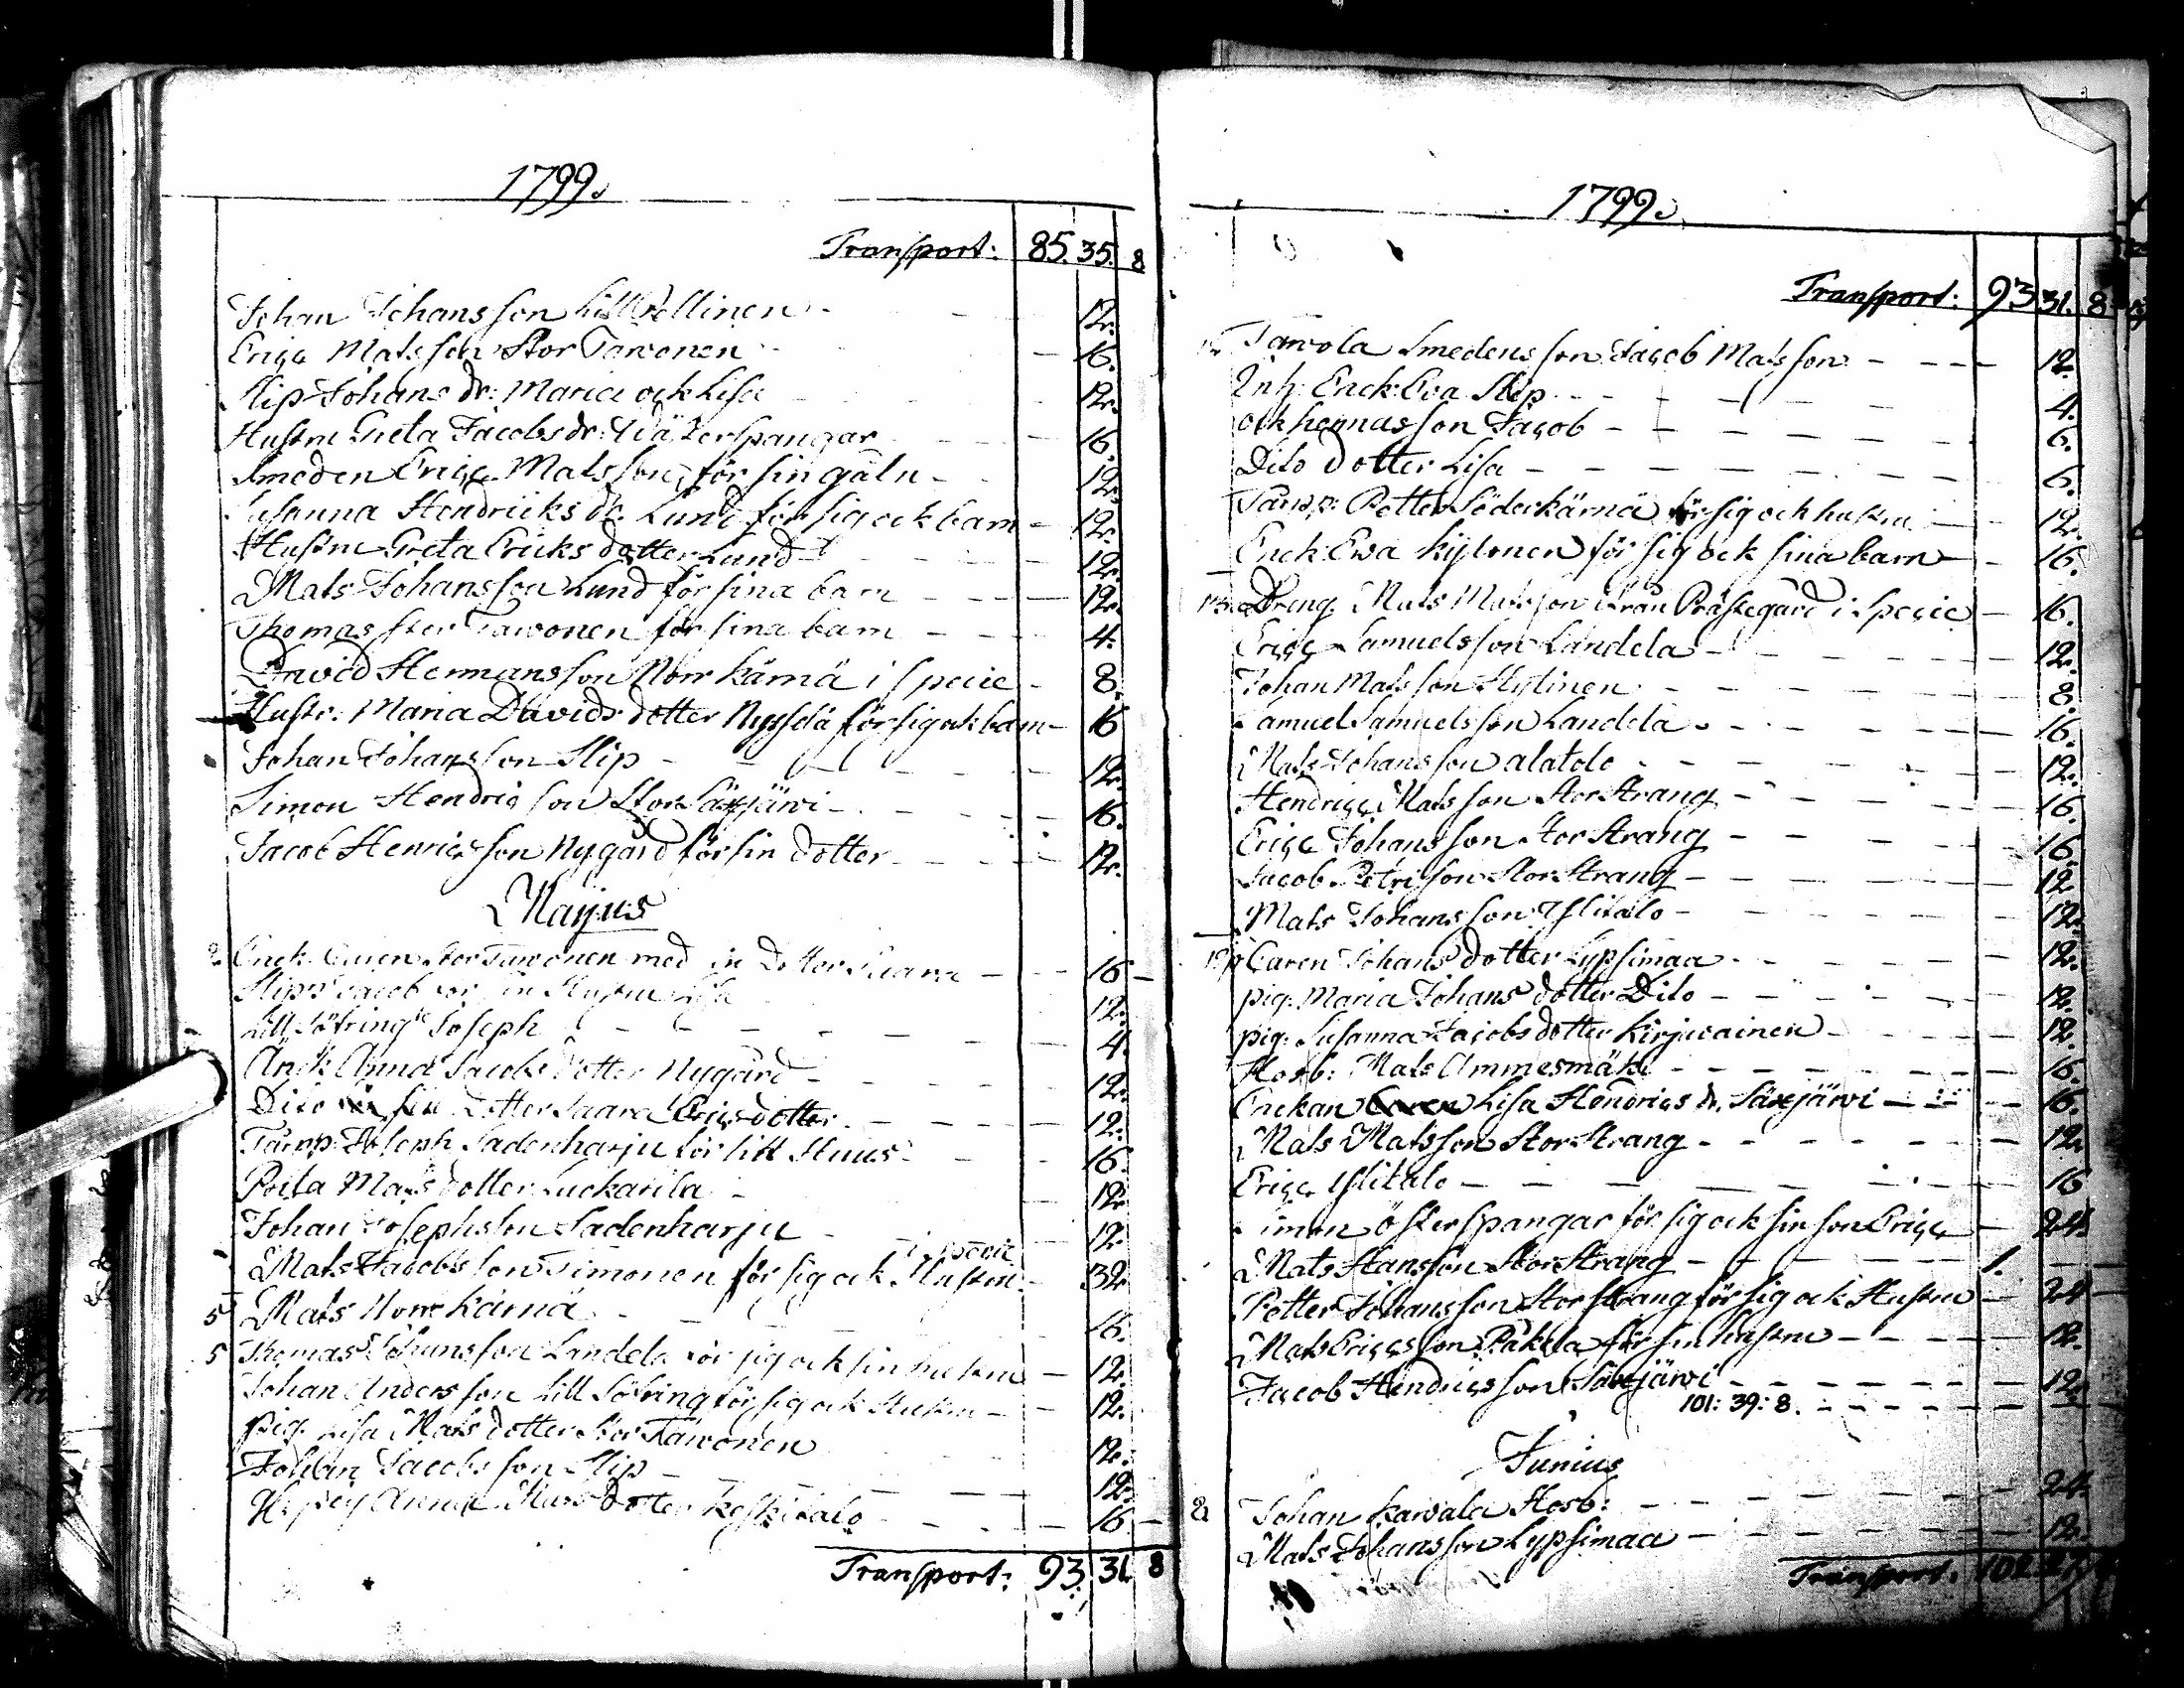 1799.
Transport: 85. 35. 8
Johan Johansson Lill Pellinen - 12.
Eriçe Matsson Stor Tarvonen - 16.
Slip Johans dr: Maria ock Lisa - 12.
Hustru Greta Jacobs dr: Wästerspangar - 16.
Smeden Eriçe Matsson, för sin - 12.
Susanna Hendricks dr. Lund för sig ock barn - 12.
Hustru Greta Ericks dotter Lund - 12.
Mats Johansson Lund för sina barn - 12.
Thomas Stor Tarwonen för sina barn - 4.
David Hermansson Norr kärnä i Specie - 8.
Hustr: Maria Davids dotter Nysselä för sig ock barn - 16
Johan Johansson Slip - 12.
Simon Hendricsson Stor Säxjärvi - 16.
Jacob Henricsson Nygård för sin dotter - 12.
Majus
2. Enck. Caren Stor Tarwonen med sin dotter Saara - 16 -
Slips Jacob för sin Hustru Lisa - 12.
Lill Söfring Joseph - 4.
Änck Anna Jacobs dotter Nygård - 12.
Dito sin dotter Saara Erics dotter - 12.
Torpp: Joseph Sadenharju för sitt Huus - 16.
Brita Mats dotter Luckarila - 12.
Johan Josephsson Sadenharju - 12.
i Specie
Mats Jacobsson Timonen för sig ock Hustru - 32
5 Mats Norrkärnä - 16.
5 Thomas Johansson Landela för sig ock sin hustru - 12.
Johan Andersson Lill Söfring för sig ock Hustru - 12.
pig. Lisa Mats dotter Stor Tarwonen 12.
Johan Jacobsson Slip - 12.
Anna Mats dotter Keskitalo - 16 -
Transport: 93. 31. 8
1799.
Transport: 93 31. 8
Tarvola Smedens son Jacob Matsson - 12.
Inh: Enck: Eva Slip - 4.
ock hennas son Jacob - 6.
Dito dotter Lisa - 6.
Torpp: Petter Söderkärnä för sig och hustru - 12.
Enck: Ewa Kylönen för sig ock sina barn - 16.
Dreng. Mats Matsson från Prästegård i Specie - 16.
Eriçe Samuelsson Landela - 12.
Johan Matsson Hytinen - 8.
Samuel Samuelsson Landela - 16.
Mats Johansson alatalo - 12.
Hendriçe Matsson Stor Strang - 16.
Eriçe Johansson Stor Strang - 16.
Jacob Petrisson Stor Strang - 12.
Mats Johansson Yllitalo - 12.
Caren Johans dotter Lypsimaa - 12.
pig. Maria Johans dotter Dito - 12.
pig. Susanna Jacobs dotter Kirjavainen - 12.
Hosb: Mats Ammesmäki - 16.
Enckan Lisa Hendrics dr. Säxjärvi - 16.
Mats Matsson Stor Strang - 12
Eriçe Yllitalo - 16
Simon Österspangar för sig ock sin son Eriçe - 24.
Mats Hansson Stor Strang - 1. -
Petter Johansson Stor Strang för sig ock Hustru - 24 -
Mats Ericsson Päkkla för sin hustru - 12.
Jacob Hendricsson Säxjärvi - 12.
101: 39: 8.
Junius
2 Johan Kavala Hosb: - 24.
Mats Johansson Lypsimaa - 12.
Transport. 102